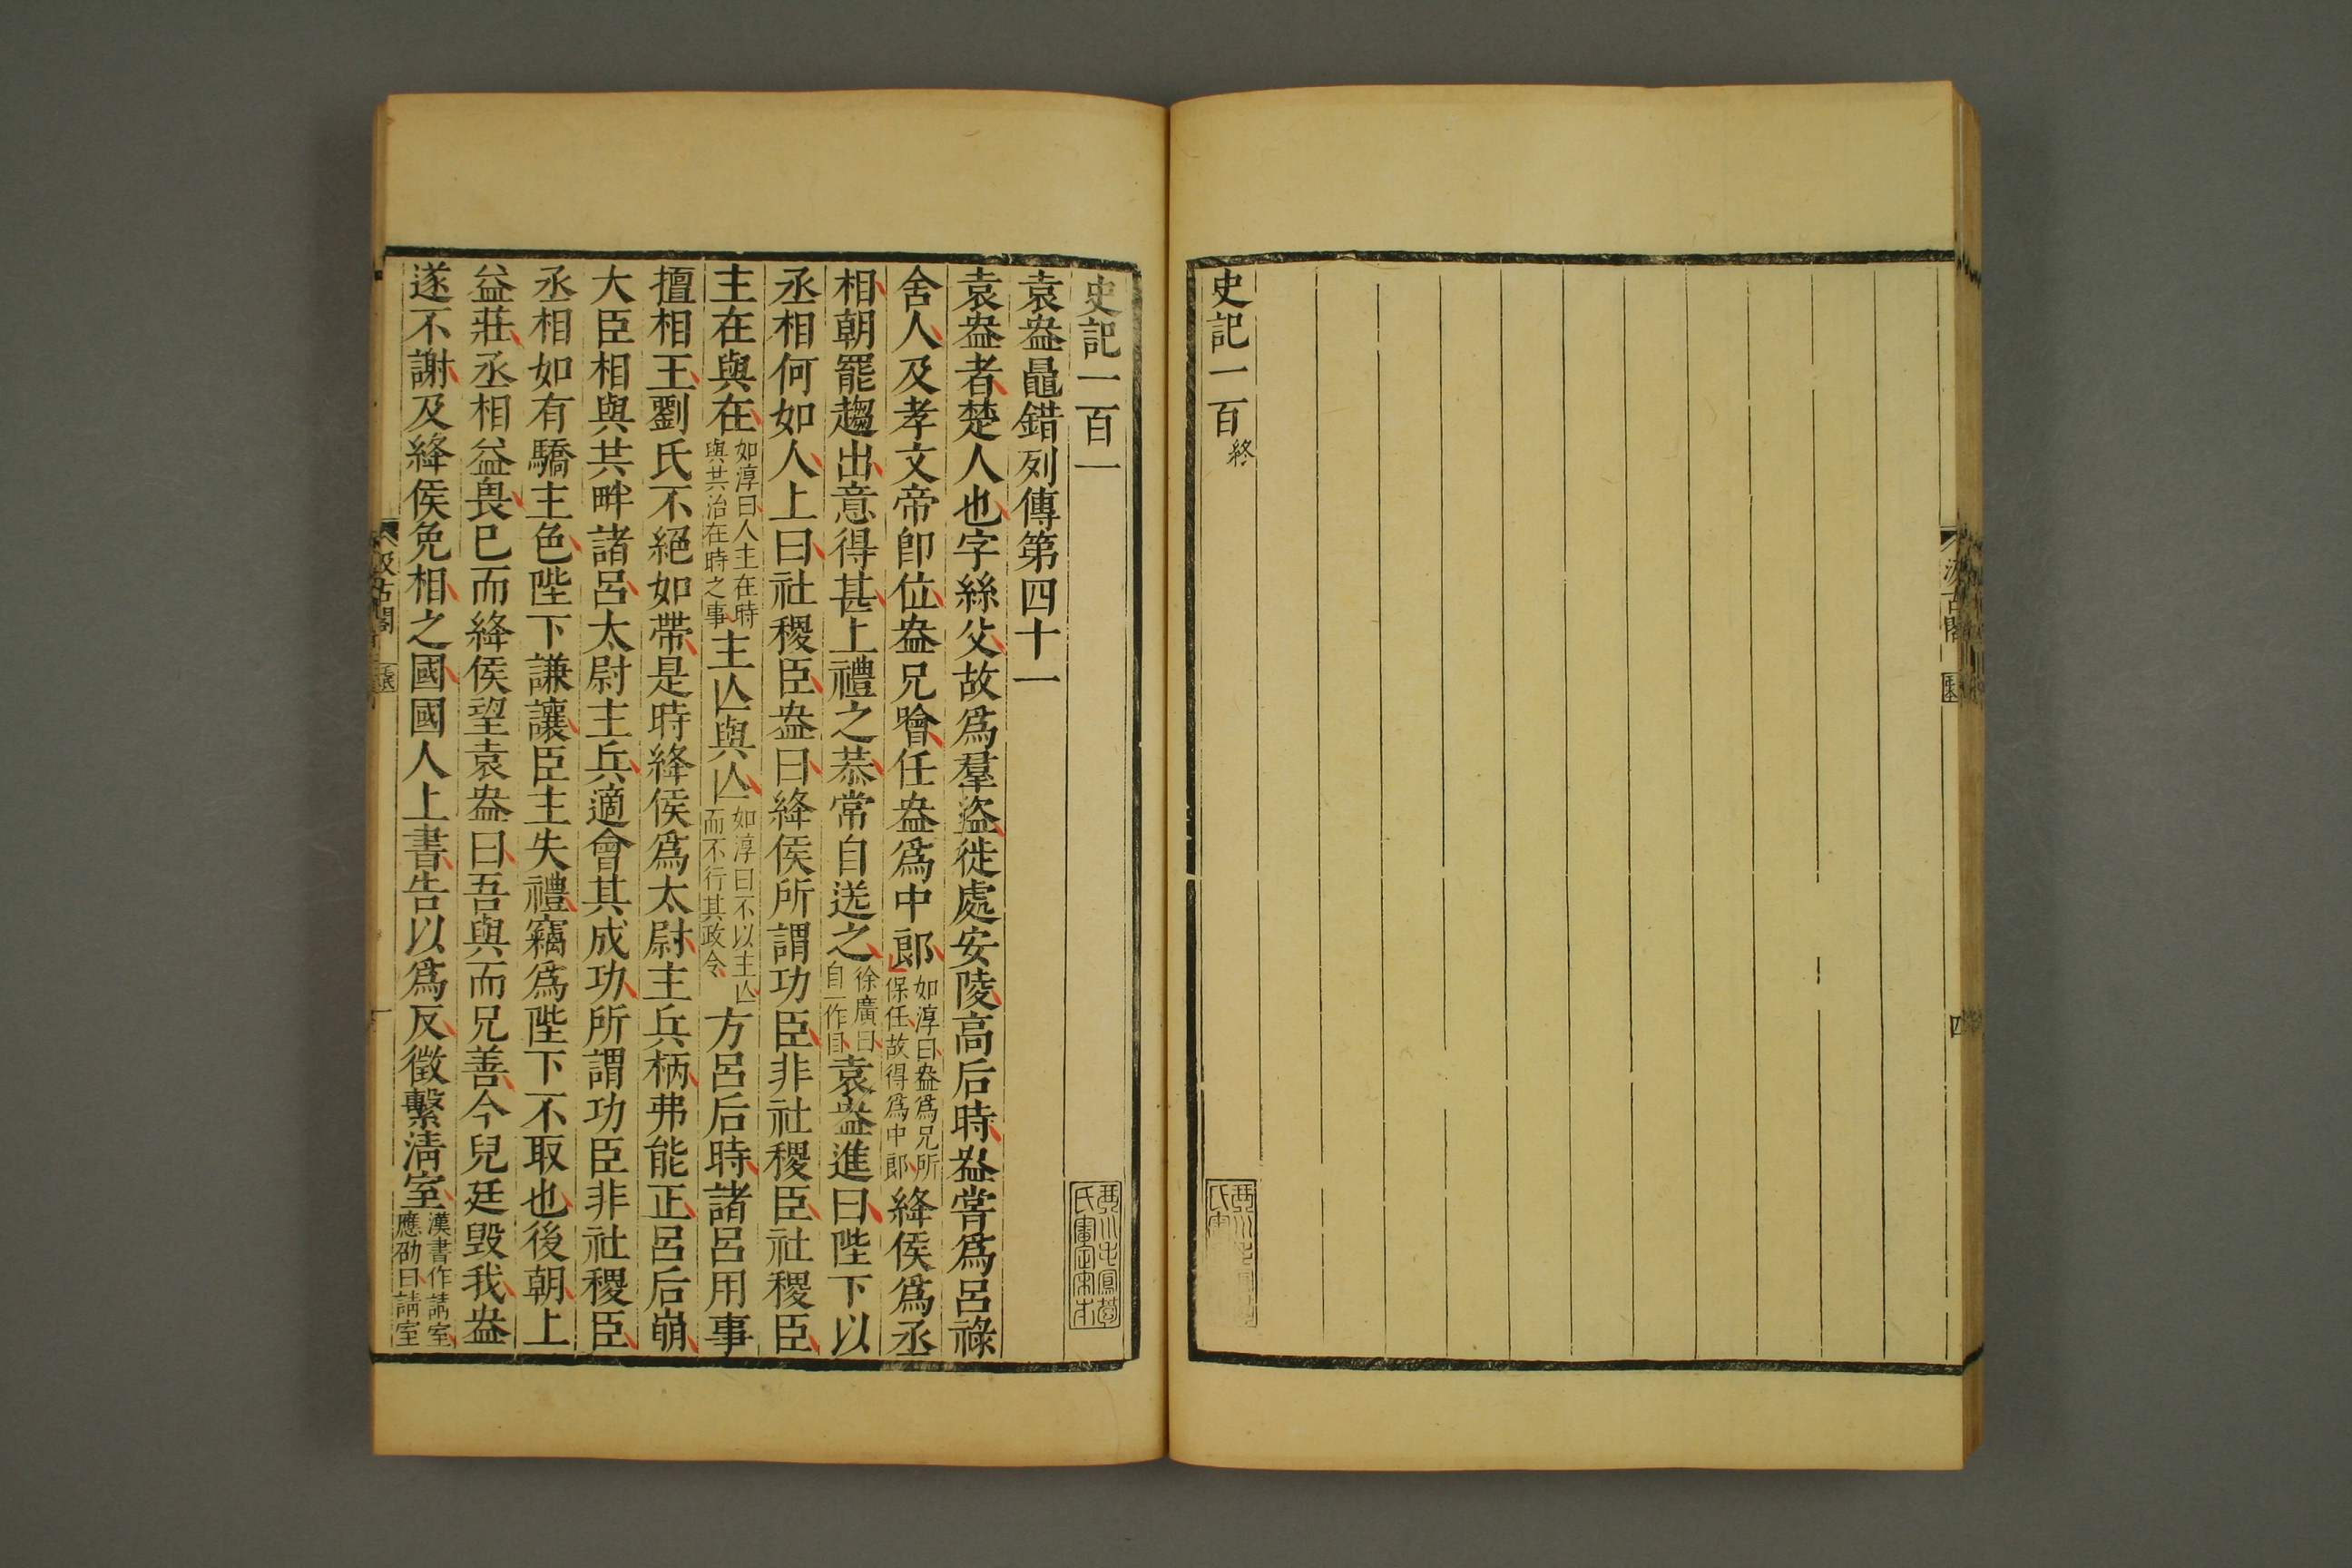 史記一百終
史記一百一
袁盎鼂錯列傳第四十一
袁盎者楚人也字絲父故爲羣盜徙處安陵高后時盎嘗爲呂祿
舍人及孝文帝卽位盎兄噲任盎爲中郞如淳曰盎爲兄所保任故得爲中郞絳侯爲丞
相朝罷趨出意得甚上禮之恭常自送之徐廣曰自一作目袁盎進曰陛下以
丞相何如人上曰社稷臣盎曰絳侯所謂功臣非社稷臣社稷臣
主在與在如淳曰人主在時與共治在時之事主亾與亾如淳曰不以主亾而不行其政令方呂后時諸呂用事
擅相王劉氏不絕如帶是時絳侯爲太尉主兵柄弗能正呂后崩
大臣相與共畔諸呂太尉主兵適會其成功所謂功臣非社稷臣
丞相如有驕主色陛下謙讓臣主失禮竊爲陛下不取也後朝上
益莊丞相益畏已而絳侯望袁盎曰吾與而兄善今兒廷毀我盎
遂不謝及絳侯免相之國國人上書告以爲反徵繫淸室漢書作請室應劭曰請室
汲古閣